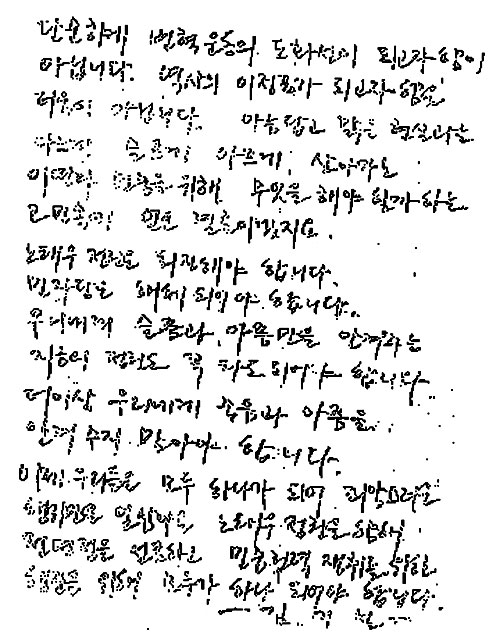 단순하게 변혁운동의 도화선이 되고자 함이
아닙니다. 역사의 이정표가 되고자 함은
더욱이 아닙니다. 아름답고 맑은 현실과는
다르게 슬프게 아프게, 살아가는
이 땅의 민중을 위해 무엇을 해야 할까 하는
고민속에 얻은 결론이겠지요.
노태우 정권은 퇴진해야 합니다.
민자당은 해체되어야 합니다.
우리에게 슬픔과 아픔만을 안겨다는
지금의 정권은 꼭 타도되어야 합니다
더이상 우리에게 슬픔과 아픔을
안겨 주지 말아야 합니다.
이제 우리들은 모두 하나가 되어 죄악으로
노태우 정권을 향하여
전면전을 선포하고 민중권력 쟁취를 위한
행진을 위해 모두가 하나 되어야 합니다.